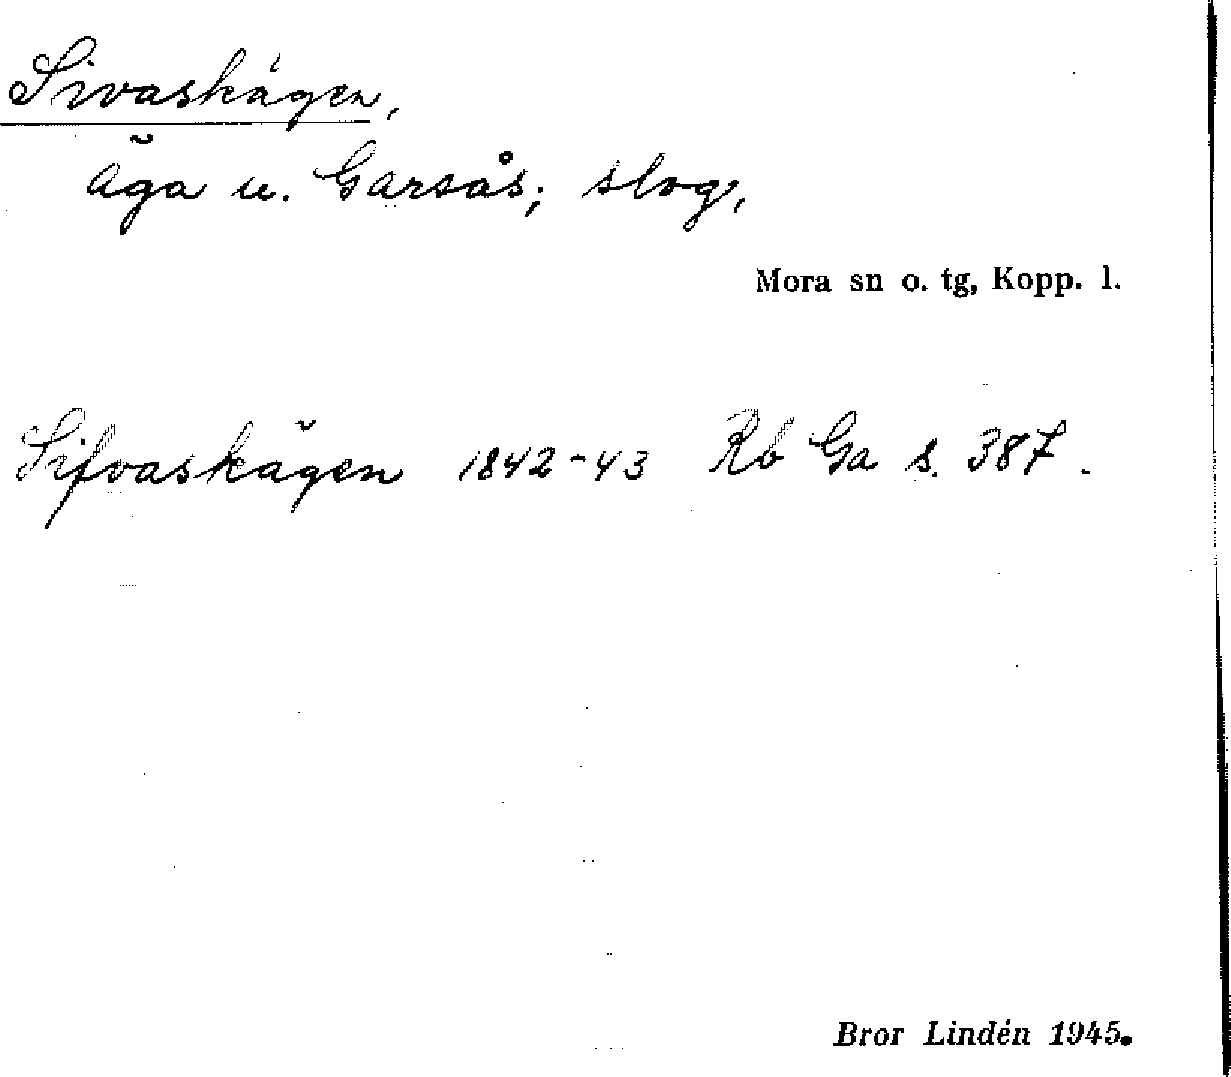 Sivaskägen,
äga u. Garsås; slog,
Mora sn o. tg, Kopp. l.
Sifvaskägen 1842-43 Rb Ga s. 387.
Bror Lindén 1945.